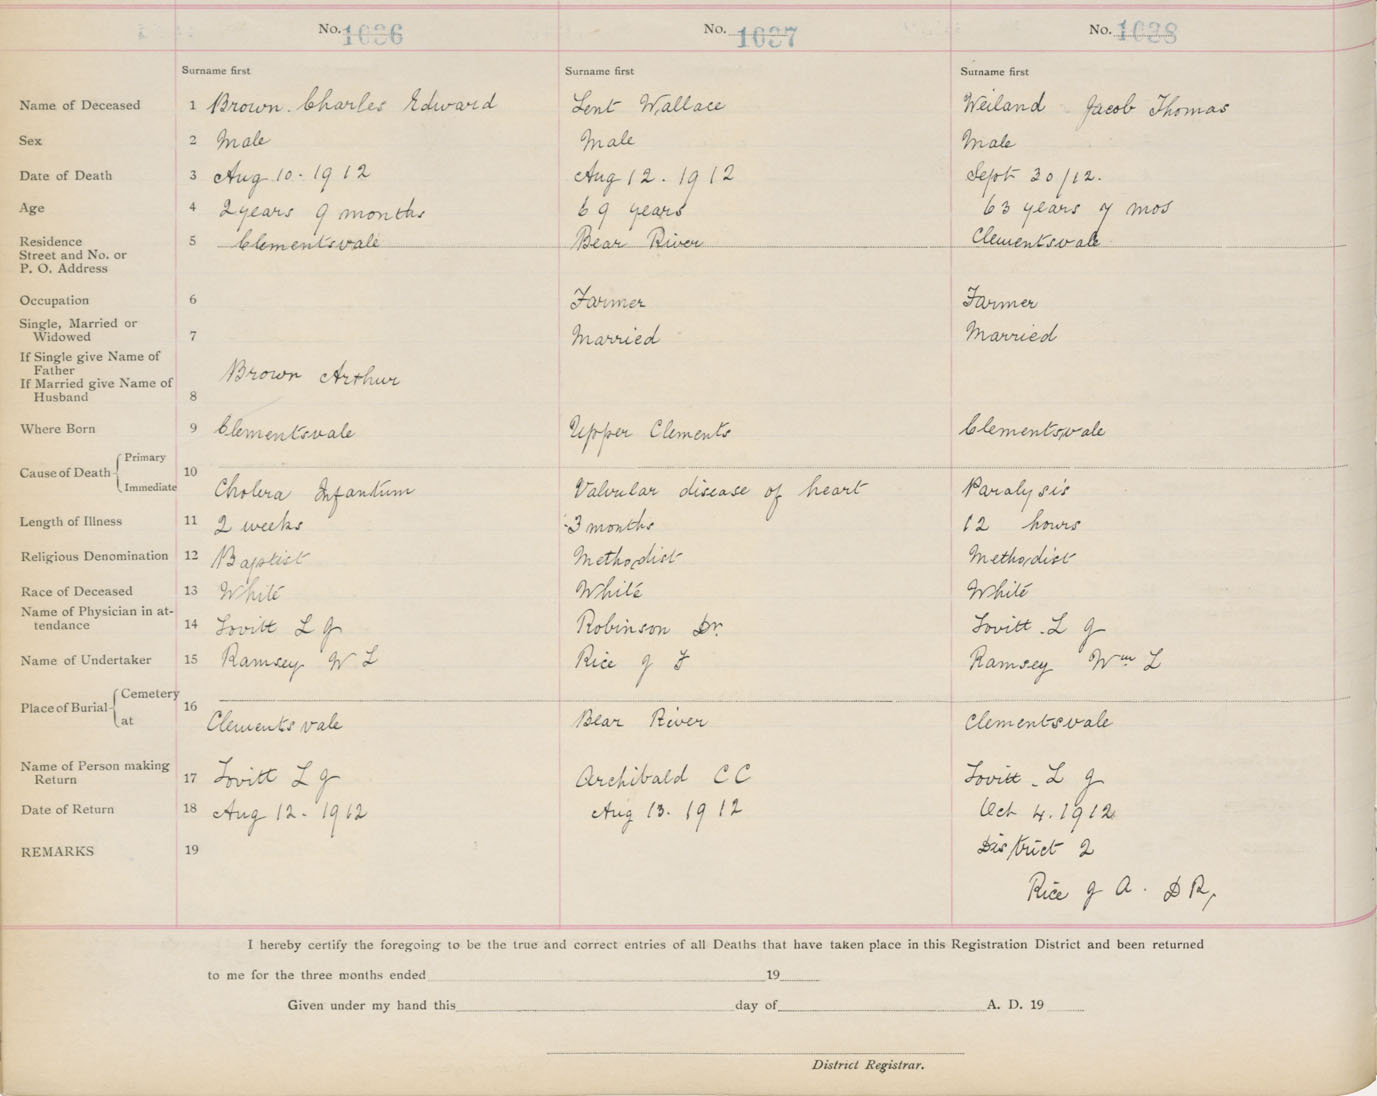 No. 1036 No. 1037 No. 1038
Surname first Surname first Surname first
Name of Deceased 1 Brown Charles Edward Lent Wallace Weiland Jacob Thomas
Sex 2 Male Male Male
Date of Death 3 Aug 10. 1912 Aug 12. 1912 Sept 30/12.
Age 4 2 years 9 months 69 years 63 years 7 mos
Residence 5 Clementsvale Bear River Clementsvale
Street and No. or
P. O. Address
Occupation 6 Farmer Farmer
Single, Married or
Widowed 7 Married Married
If Single give Name of
Father Brown Arthur
If Married give Name of
Husband 8
Where Born 9 Clementsvale Upper Clements Clementsvale
Primary
Cause of Death 10
Immediate Cholera Infantum Valvular disease of heart Paralysis
Length of Illness 11 2 weeks 3 months 12 hours
Religious Denomination 12 Baptist Methodist Methodist
Race of Deceased 13 White White White
Name of Physician in at-
tendance 14 Lovitt L J Robinson Dr. Lovitt. L J
Name of Undertaker 15 Ramsey W L Rice J F Ramsey Wm L
Cemetery
Place of Burial 16
at Clementsvale Bear River Clementsvale
Name of Person making
Return 17 Lovitt L J Archibald C C Lovitt. L J
Date of Return 18 Aug 12. 1912 Aug 13. 1912 Oct 4. 1912
REMARKS 19 District 2
Rice J A. D R,
I hereby certify the foregoing to be the true and correct entries of all Deaths that have taken place in this Registration District and been returned
to me for the three months ended 19
Given under my hand this day of A. D. 19
District Registrar.